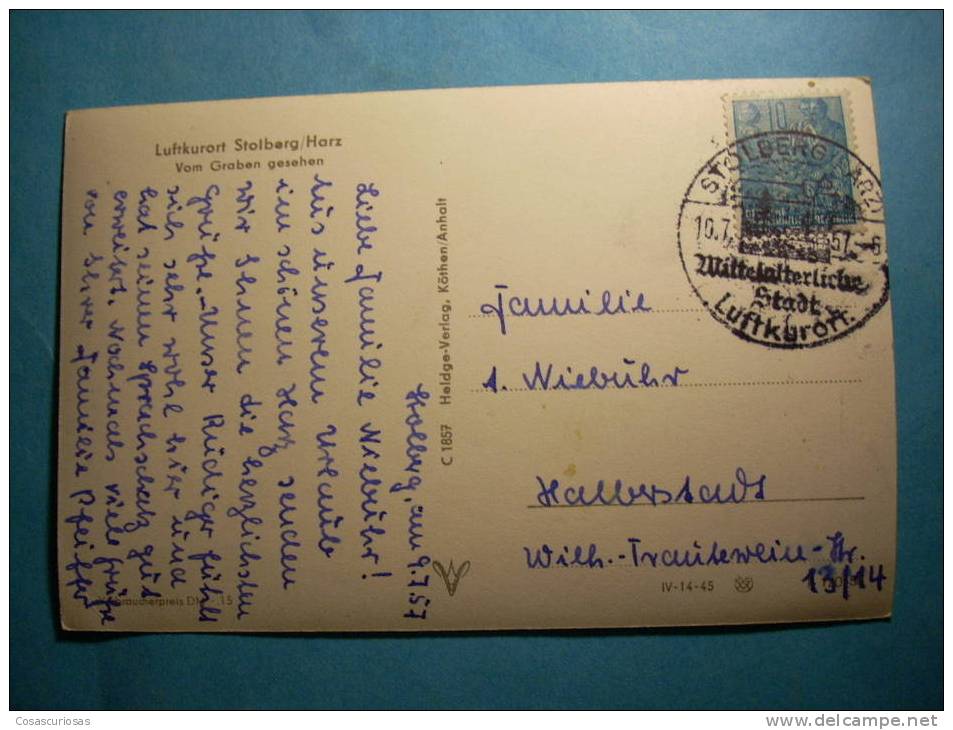 Luftkurort Stolberg/Harz
Vom Graben gesehen
Stolberg, am 9.7.57
Liebe Familie Niebuhr!
Aus unserem Urlaub
im schönen Harz senden
wir Ihnen die herzlichsten
Grüße. Unser Rüdiger fühlt
sich sehr wohl hier und
hat seinen Sprachschatz gut
erweitert. Nochmals viele Grüße
von Ihrer Familie Pfeiffer
C 1857 Heldge-Verlag, Köthen/Anhalt
10
STOLBERG (HARZ)
10.7.57-6
Mittelalterliche
Stadt
Luftkurort
Familie
Niebuhr
Halberstadt
Wilh.-Trautewein-Str.
13/14
IV-14-45
Verbraucherpreis DM -,15
Cosascuriosas
delcampe.net